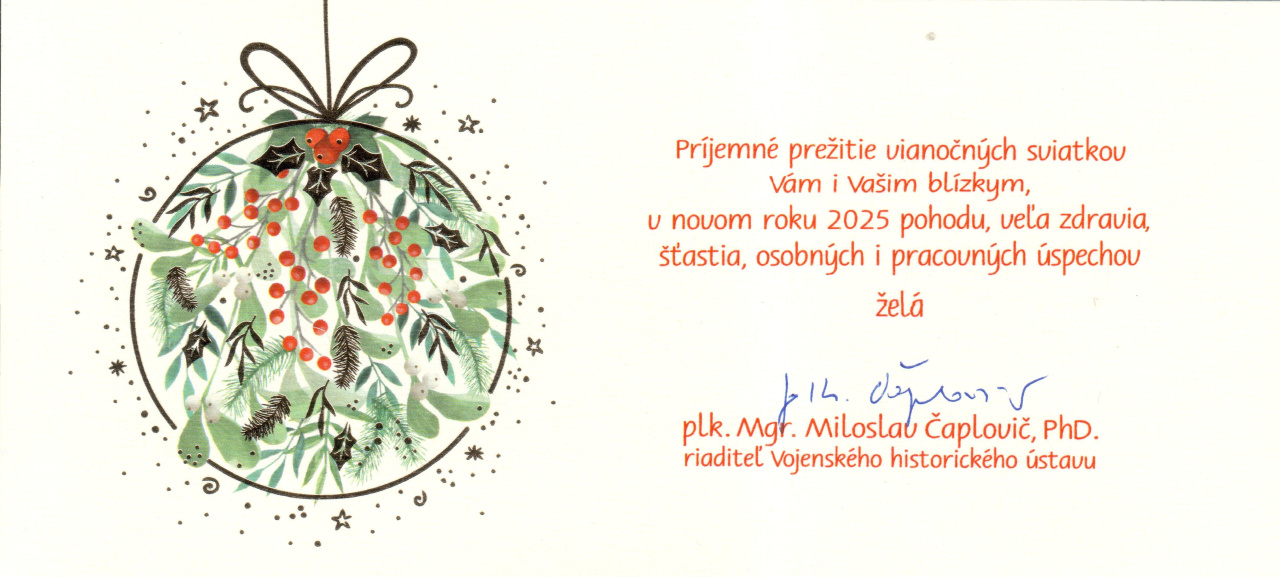 Príjemné prežitie vianočných sviatkov
Vám i Vašim blízkym,
v novom roku 2025 pohodu, veľa zdravia,
šťastia, osobných i pracovných úspechov
želá
plk. Mgr. Miloslav Čaplovič, PhD.
riaditeľ Vojenského historického ústavu